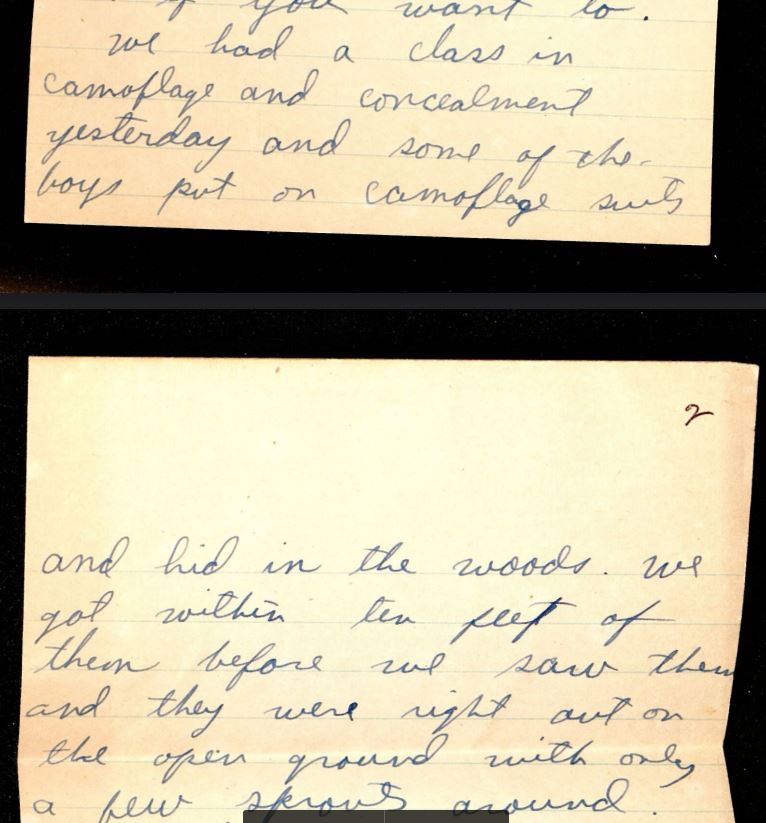 if you want to.
we had a class in
camoflage and concealment
yesterday and some of the
boys put on camoflage suits
2
and hid in the woods. we
got within ten feet of
them before we saw them
and they were right out on
the open ground with only
a few sprouts around.